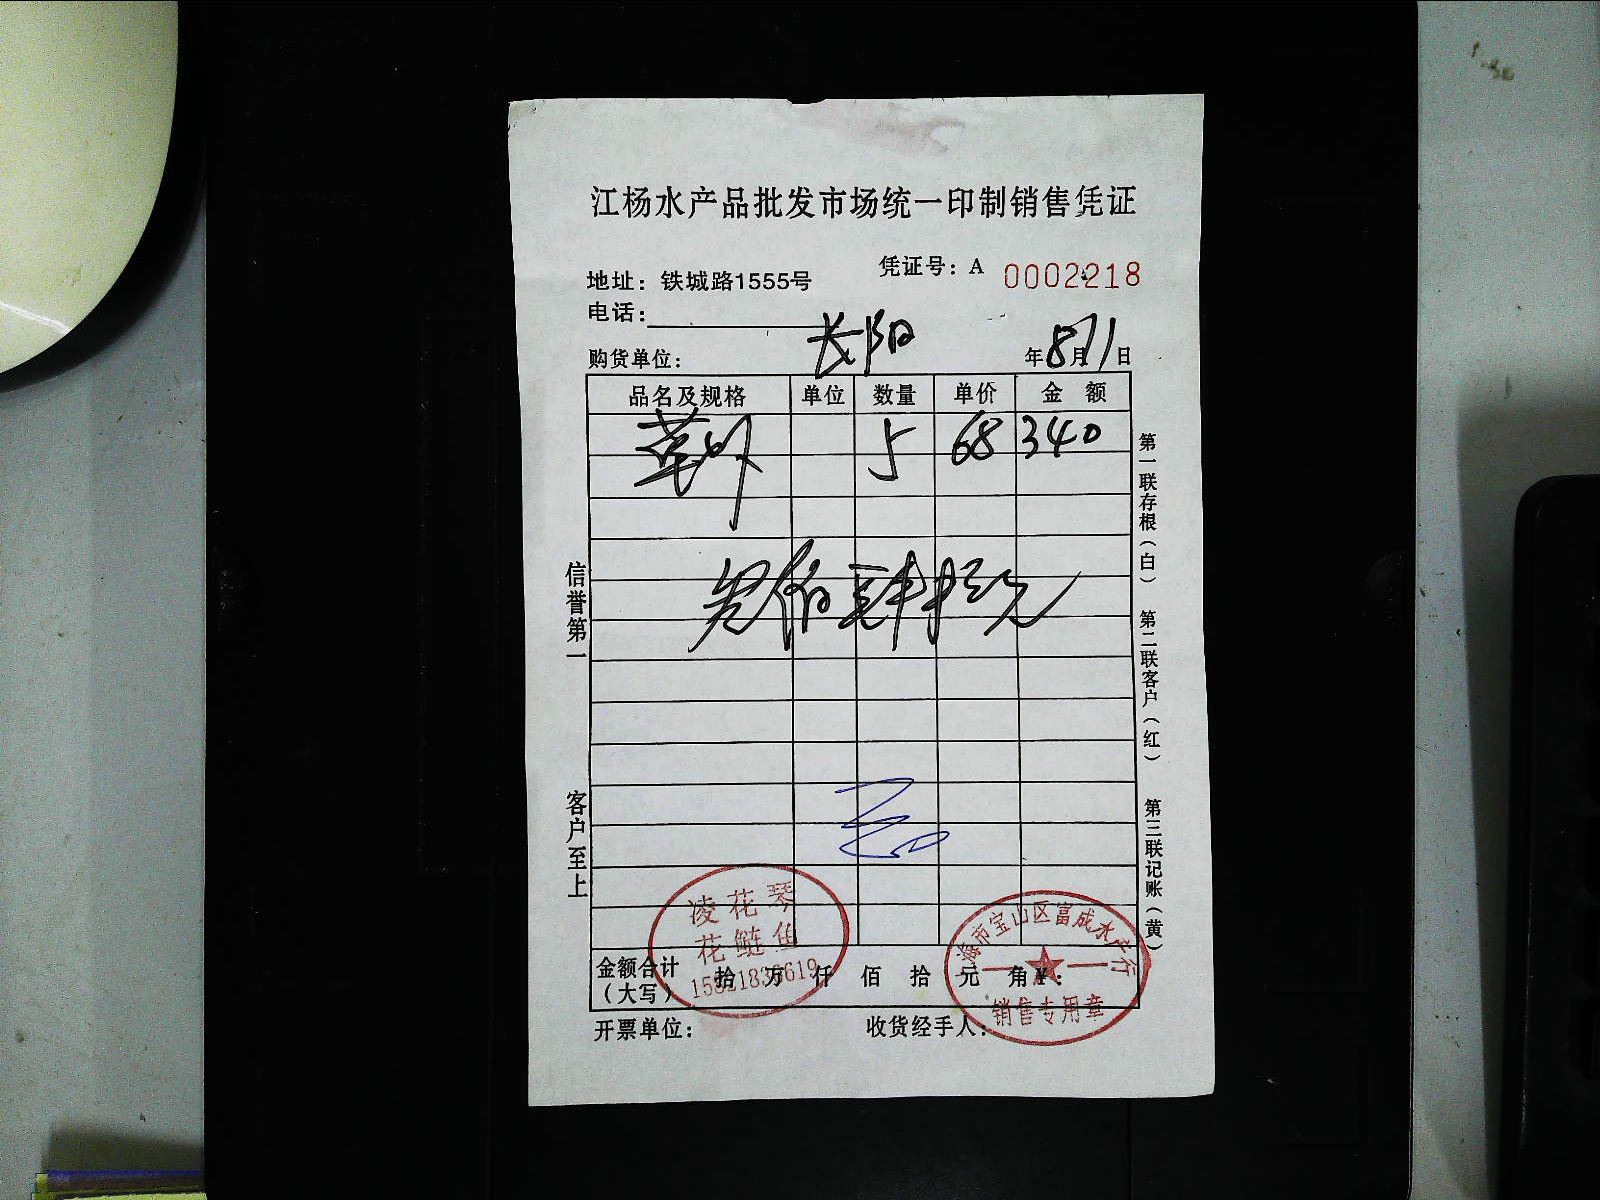 江杨水产品批发市场统一印制销售凭证
凭证号：A 0002218
地址：铁城路1555号
电话：
购货单位： 长阳 年8月11日
品名及规格 单位 数量 单价 金 额
5 68 340
叁佰肆拾元
信誉第一 客户至上
第一联存根（白） 第二联客户（红） 第三联记账（黄）
凌花琴
花鲢鱼
海市宝山区富成水产行
销售专用章
金额合计（大写） 拾 万 仟 佰 拾 元 角 ¥：
开票单位： 收货经手人：